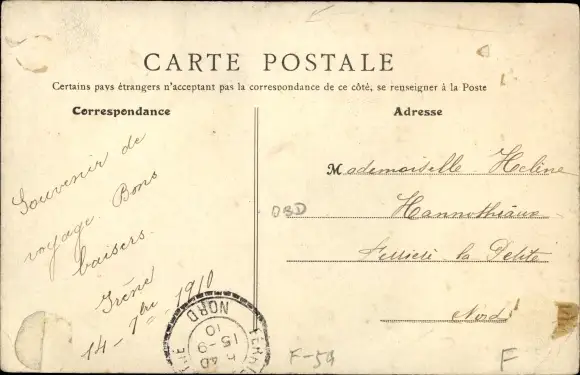 CARTE POSTALE
Certains pays étrangers n'acceptant pas la correspondance de ce côté, se renseigner à la Poste
Correspondance
Souvenir de
voyage. Bons
baisers.
Irène
14-7bre-1910
Adresse
Mademoiselle Heline
Hannothiaux
la Petite
Nord
OBD
NORD
15-9
10
F-54
F